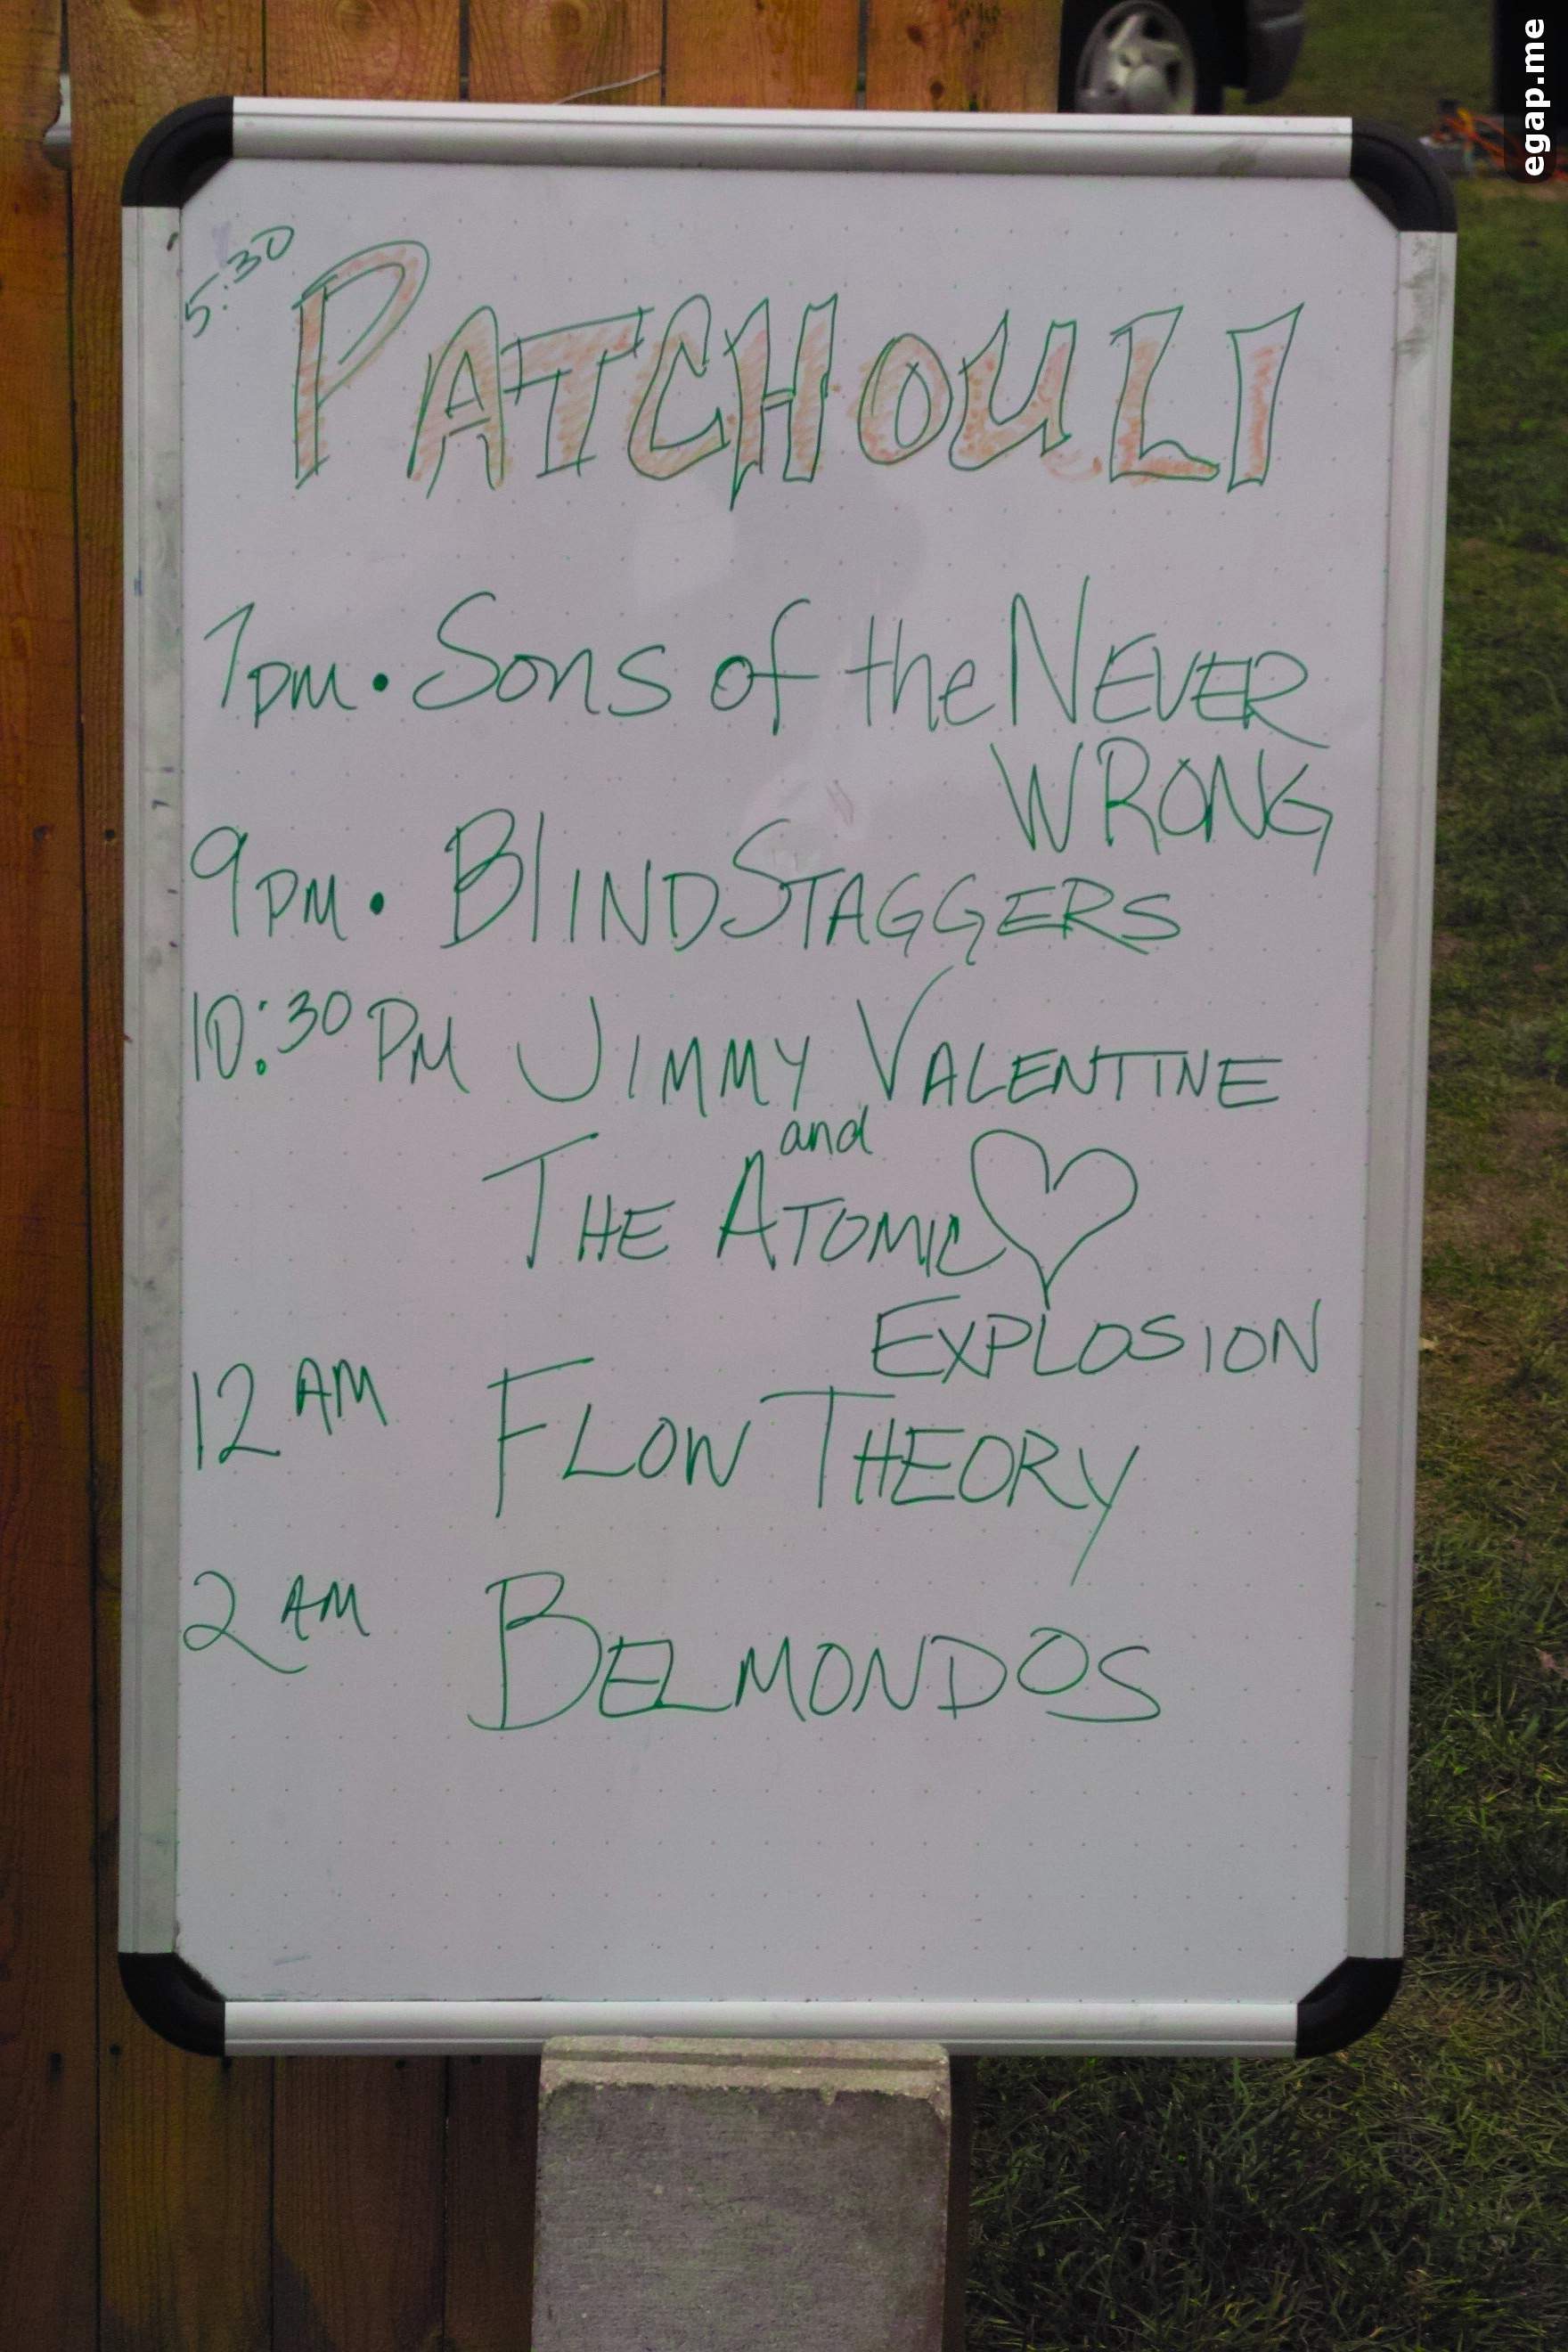 5:30
PATCHOULI
7pm • Sons of the NEVER
WRONG
9PM • BLINDSTAGGERS
10:30 PM JIMMY VALENTINE
and
THE ATOMIC ♡
EXPLOSION
12 AM FLOW THEORY
2 AM BELMONDOS
egap.me